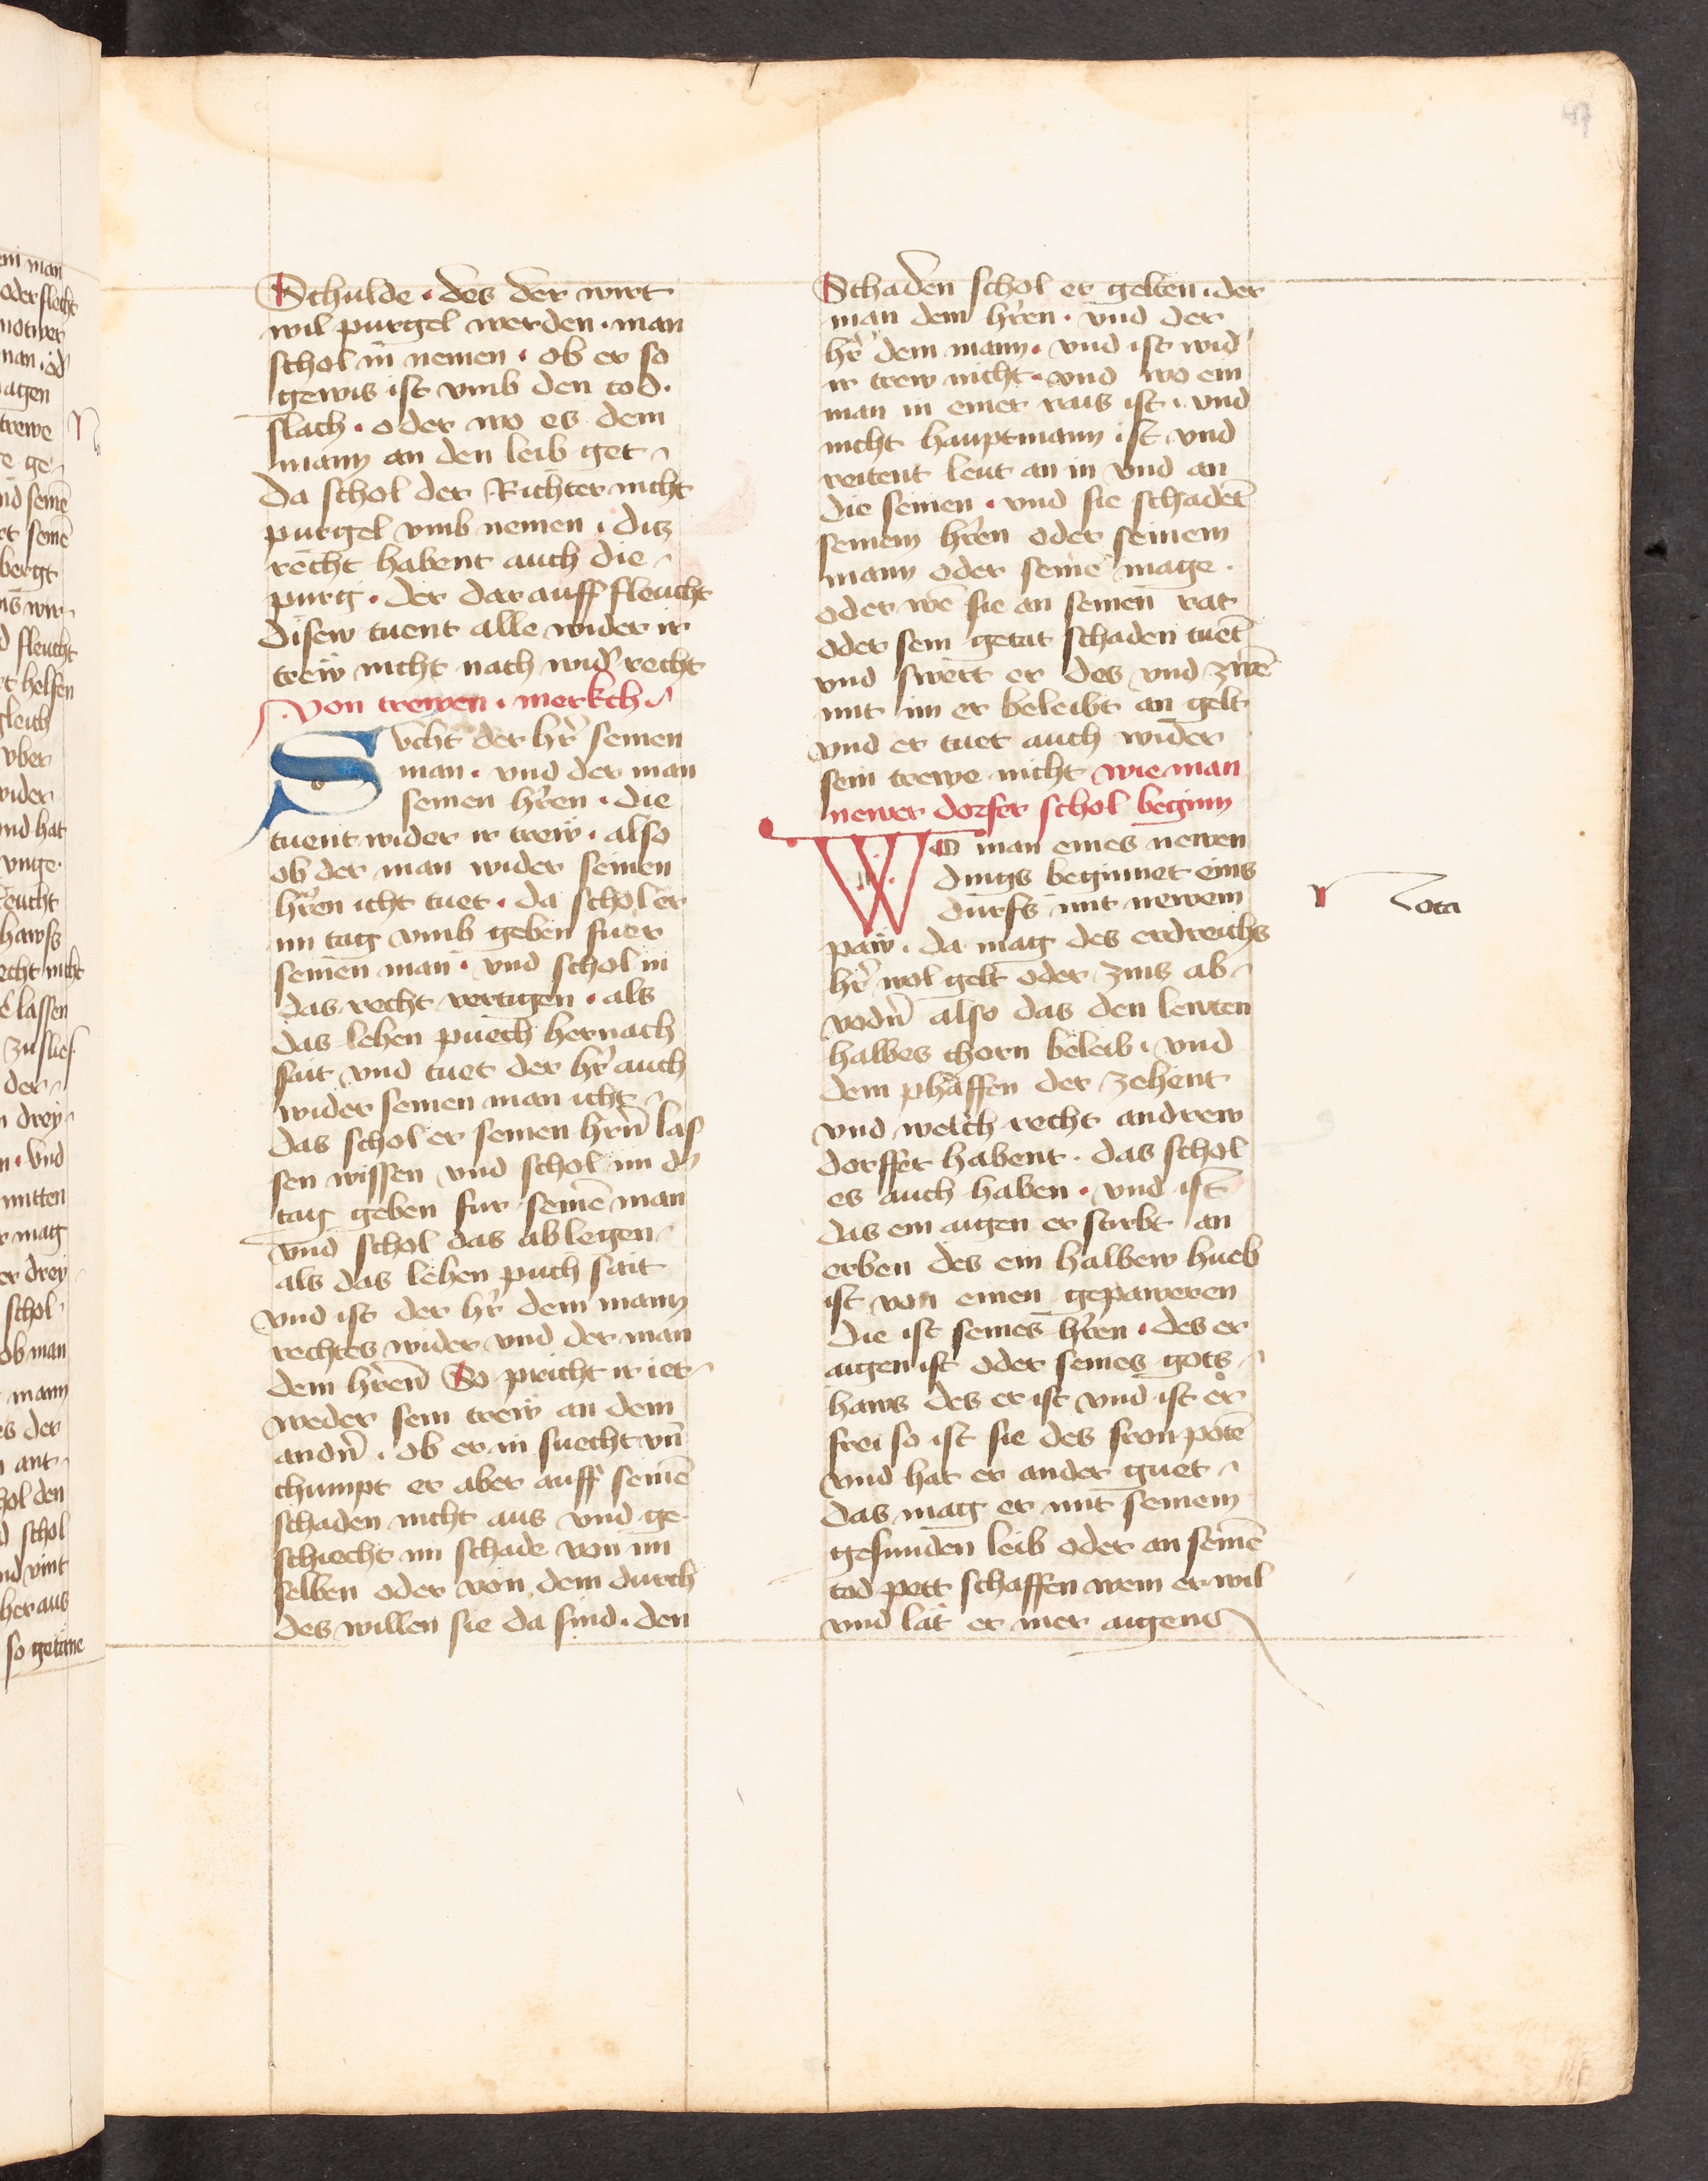 Schulde · des der wirt
wil purgel werden · man
schol in nemen · ob er so
gewis ist vmb den tod ·
slach · oder wo es dem
mann an den leib get
da schol der Richter nicht
purgel vmb nemen · dis
recht habent auch die
purg · der darauff fleucht
disew tuent alle wider ir
trew nicht nach wid' recht
von trewen · merkch
Svcht der hr̄ seinen
man · vnd der man
seinen hr̄ren · die
tuent wider ir trew · also
ob der man wider seinen
hr̄ren icht tuet · da schol er
im tag vmb geben fuer
seinen man · vnd schol in
das recht vertigen · als
das lehen puech hernach
sait vnd tuet der hr̄ auch
wider seinen man icht
das schol er seinen hrn̄ las
sen wissen vnd schol im d'
tag geben fur seinē man
vnd schol das ablegen
als das lehen puch sait
vnd ist der hr̄ dem mann
rechtes wider vnd der man
dem hr̄ren So pricht ir iet
weder sein trew an dem
andn̄ · ob er in suecht vn̄
chumpt er aber auff seinē
schaden nicht aus vnd ge
schiecht im schade von im
selben oder von dem durch
des willen sie da sind · den
Schaden schol er gelten · der
man dem hr̄ren · vnd der
hr̄ dem mann · vnd ist wid'
ir trew nicht · vnd wo ein
man in einer rais ist · vnd
nicht hauptmann ist vnd
reitent leut an in vnd an
die seinen · vnd sie schadet
seinem hr̄ren oder seinem
mann oder seinē mage ·
oder wē sie an seinen rat
oder sein getat schaden tuet
vnd swert er des vnd zwē
mit im er beleibt an gelt
vnd er tuet auch wider
sein trewe nicht wie man
newer dorfer schol beginn
WO man eines newen
dings beginnet eins
durfs mit newem
paw · da mag des erdreichs
hr̄ wol gelt oder zins ab
vodn̄ also das den lewten
halbes chorn beleib · vnd
dem phaffen der zehent
vnd welch recht andrew
dorffer habent · das schol
es auch haben · vnd ist
das ein aigen erstirbt an
erben des ein halbew hueb
ist von einen gepaweren
die ist seines hr̄ren · des er
aigen ist oder seines gots
haws des er ist vnd ist er
frei so ist sie des fronpotē
vnd hat er ander guet
das mag er mit seinem
gesunden leib oder an seinē
tod pett schaffen wem er wil
vnd lat er mer aigens
Nota